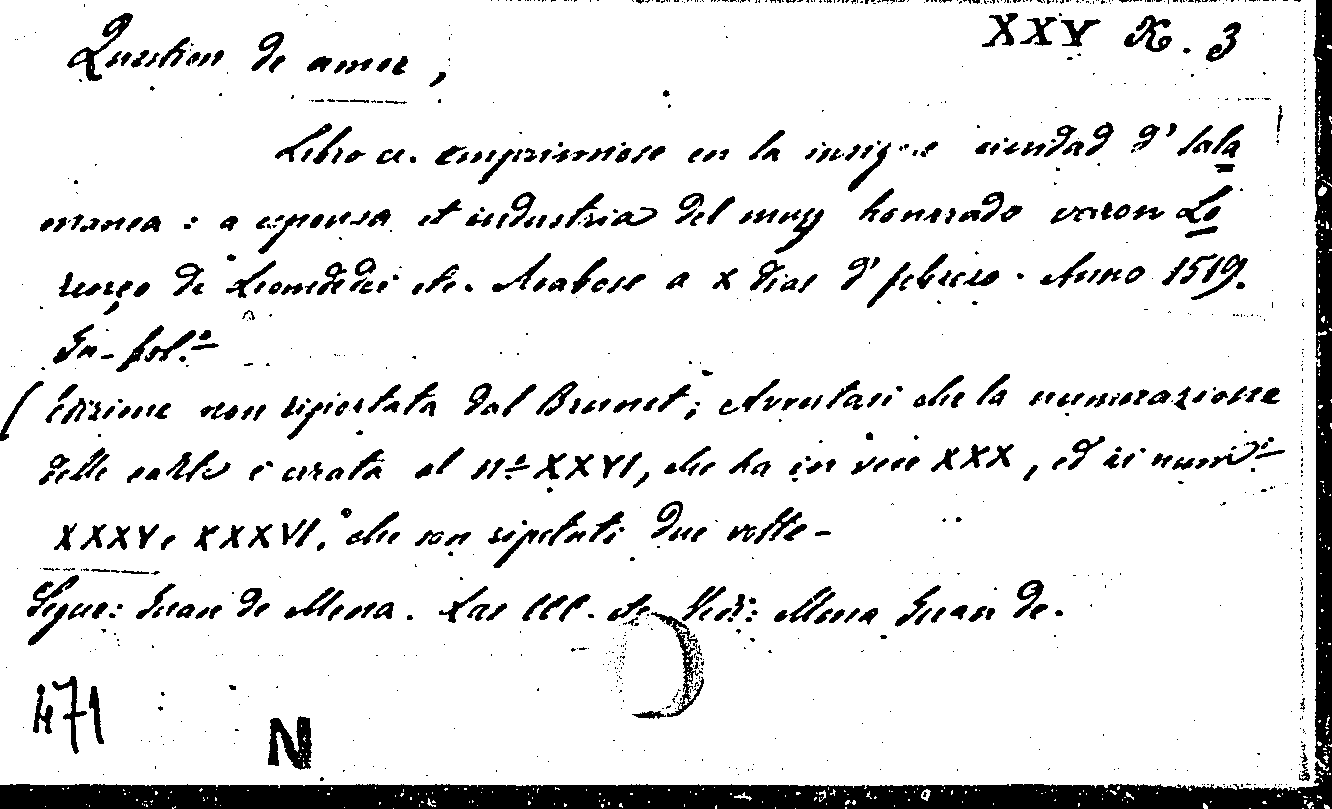 Question de amor, XXV K. 3
Libro ec. Emprimiose en la insigne ciundad d' sala
manca: a espensa et industria del muy honrrado varon Lo
renço de Leomdedei etc. Acabose a X dias d' febrero. Anno 1519.
In-fol.º
(Edizione non riportata dal Brunet; Avvertasi che la numerazione
delle carte è errata al n.º XXVI, che ha in vece XXX, ed ai num.i
XXXV e XXXVI, che son ripetuti due volte-
Segue: Juan de Mena. Las CCC. etc. Vedi: Mena Juan de.
471
N